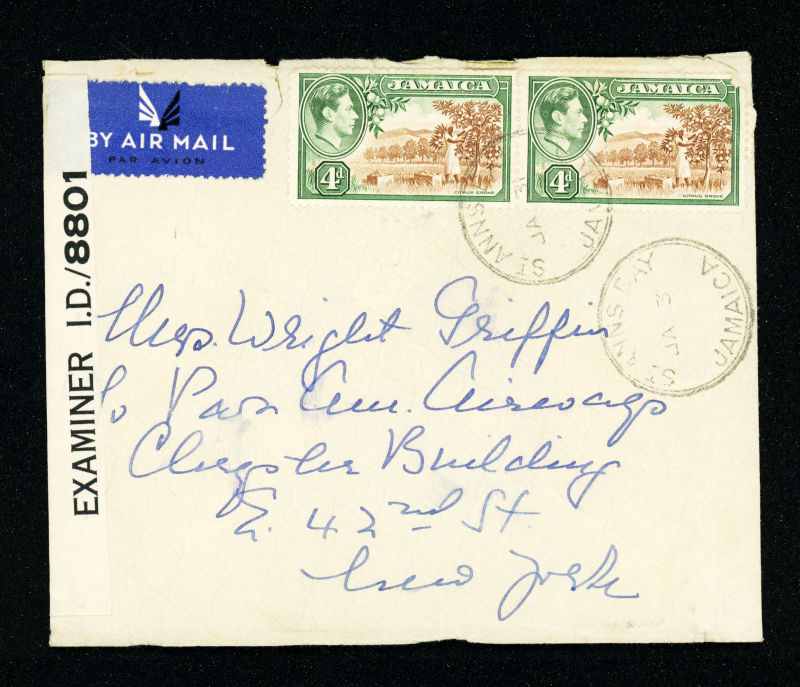 BY AIR MAIL
PAR AVION
JAMAICA
4d
CITRUS GROVE
JAMAICA
4d
CITRUS GROVE
ST ANNS
JA 3
JAM
ST ANNS BAY
JA 3
JAMAICA
EXAMINER I.D./8801
Mrs. Wright Griffin
c/o Pan Am. Airways
Chrysler Building
E. 42nd St.
New York